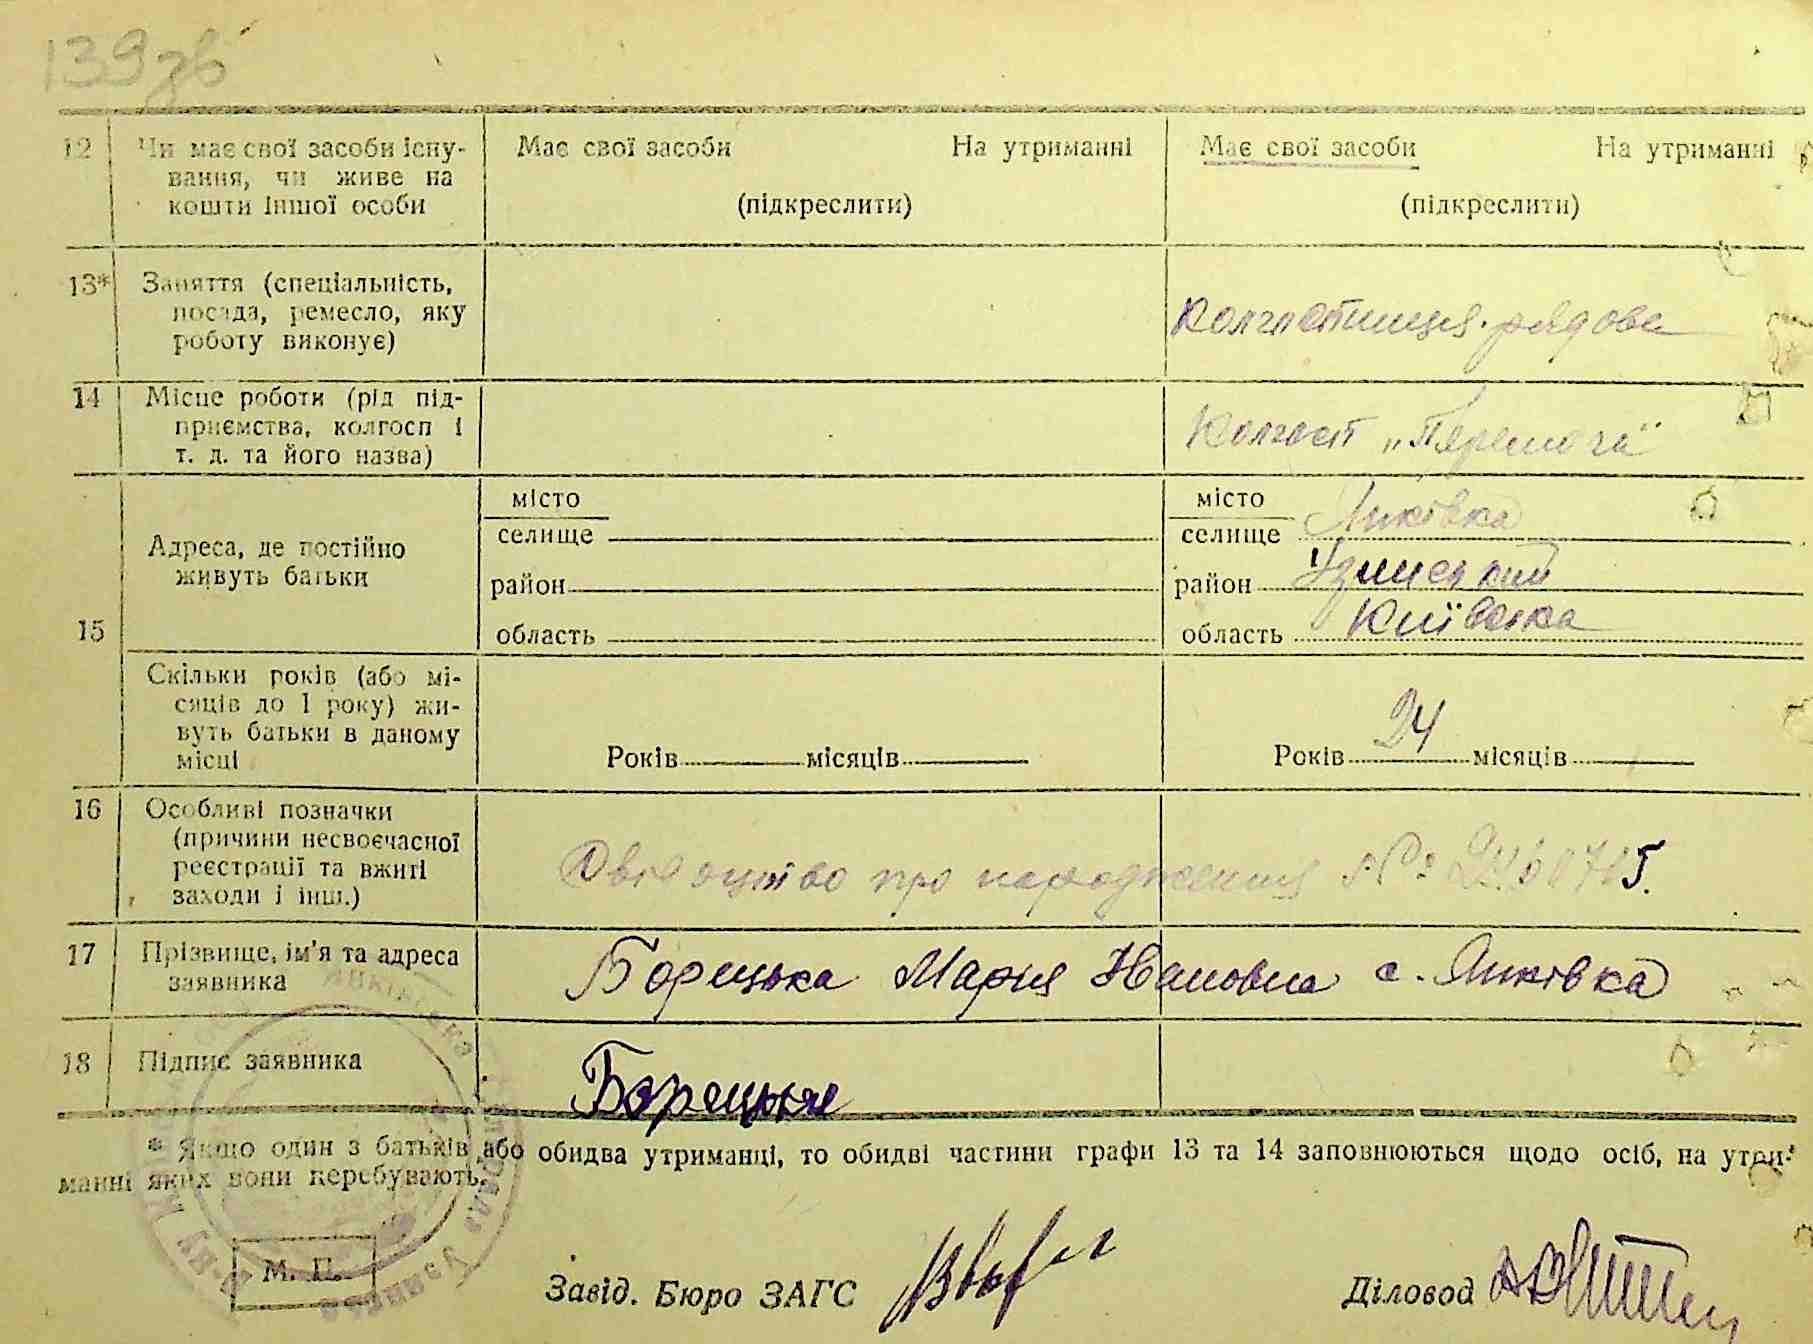 139зв
12 Чи має свої засоби існу-
вання, чи живе на
кошти іншої особи
Має свої засоби На утриманні
(підкреслити)
Має свої засоби На утриманні
(підкреслити)
13* Заняття (спеціальність,
посада, ремесло, яку
роботу виконує)
Колгостниця рядова
14 Місце роботи (рід під-
приємства, колгосп і
т. д. та його назва)
Колгосп „Перемога"
15 Адреса, де постійно
живуть батьки
місто
селище
район
область
місто
селище Янківка
район
область Київська
Скільки років (або мі-
сяців до 1 року) жи-
вуть батьки в даному
місці
Років місяців
Років 24 місяців
16 Особливі позначки
(причини несвоєчасної
реєстрації та вжиті
заходи і інш.)
Свідоцтво про народження №
17 Прізвище, ім'я та адреса
заявника
Борецька Мария Ивановна с. Янківка
18 Підпис заявника
Борецька
* Якщо один з батьків або обидва утриманці, то обидві частини графи 13 та 14 заповнюються щодо осіб, на утри-
манні яких вони перебувають.
М. П.
Завід. Бюро ЗАГС
Діловод